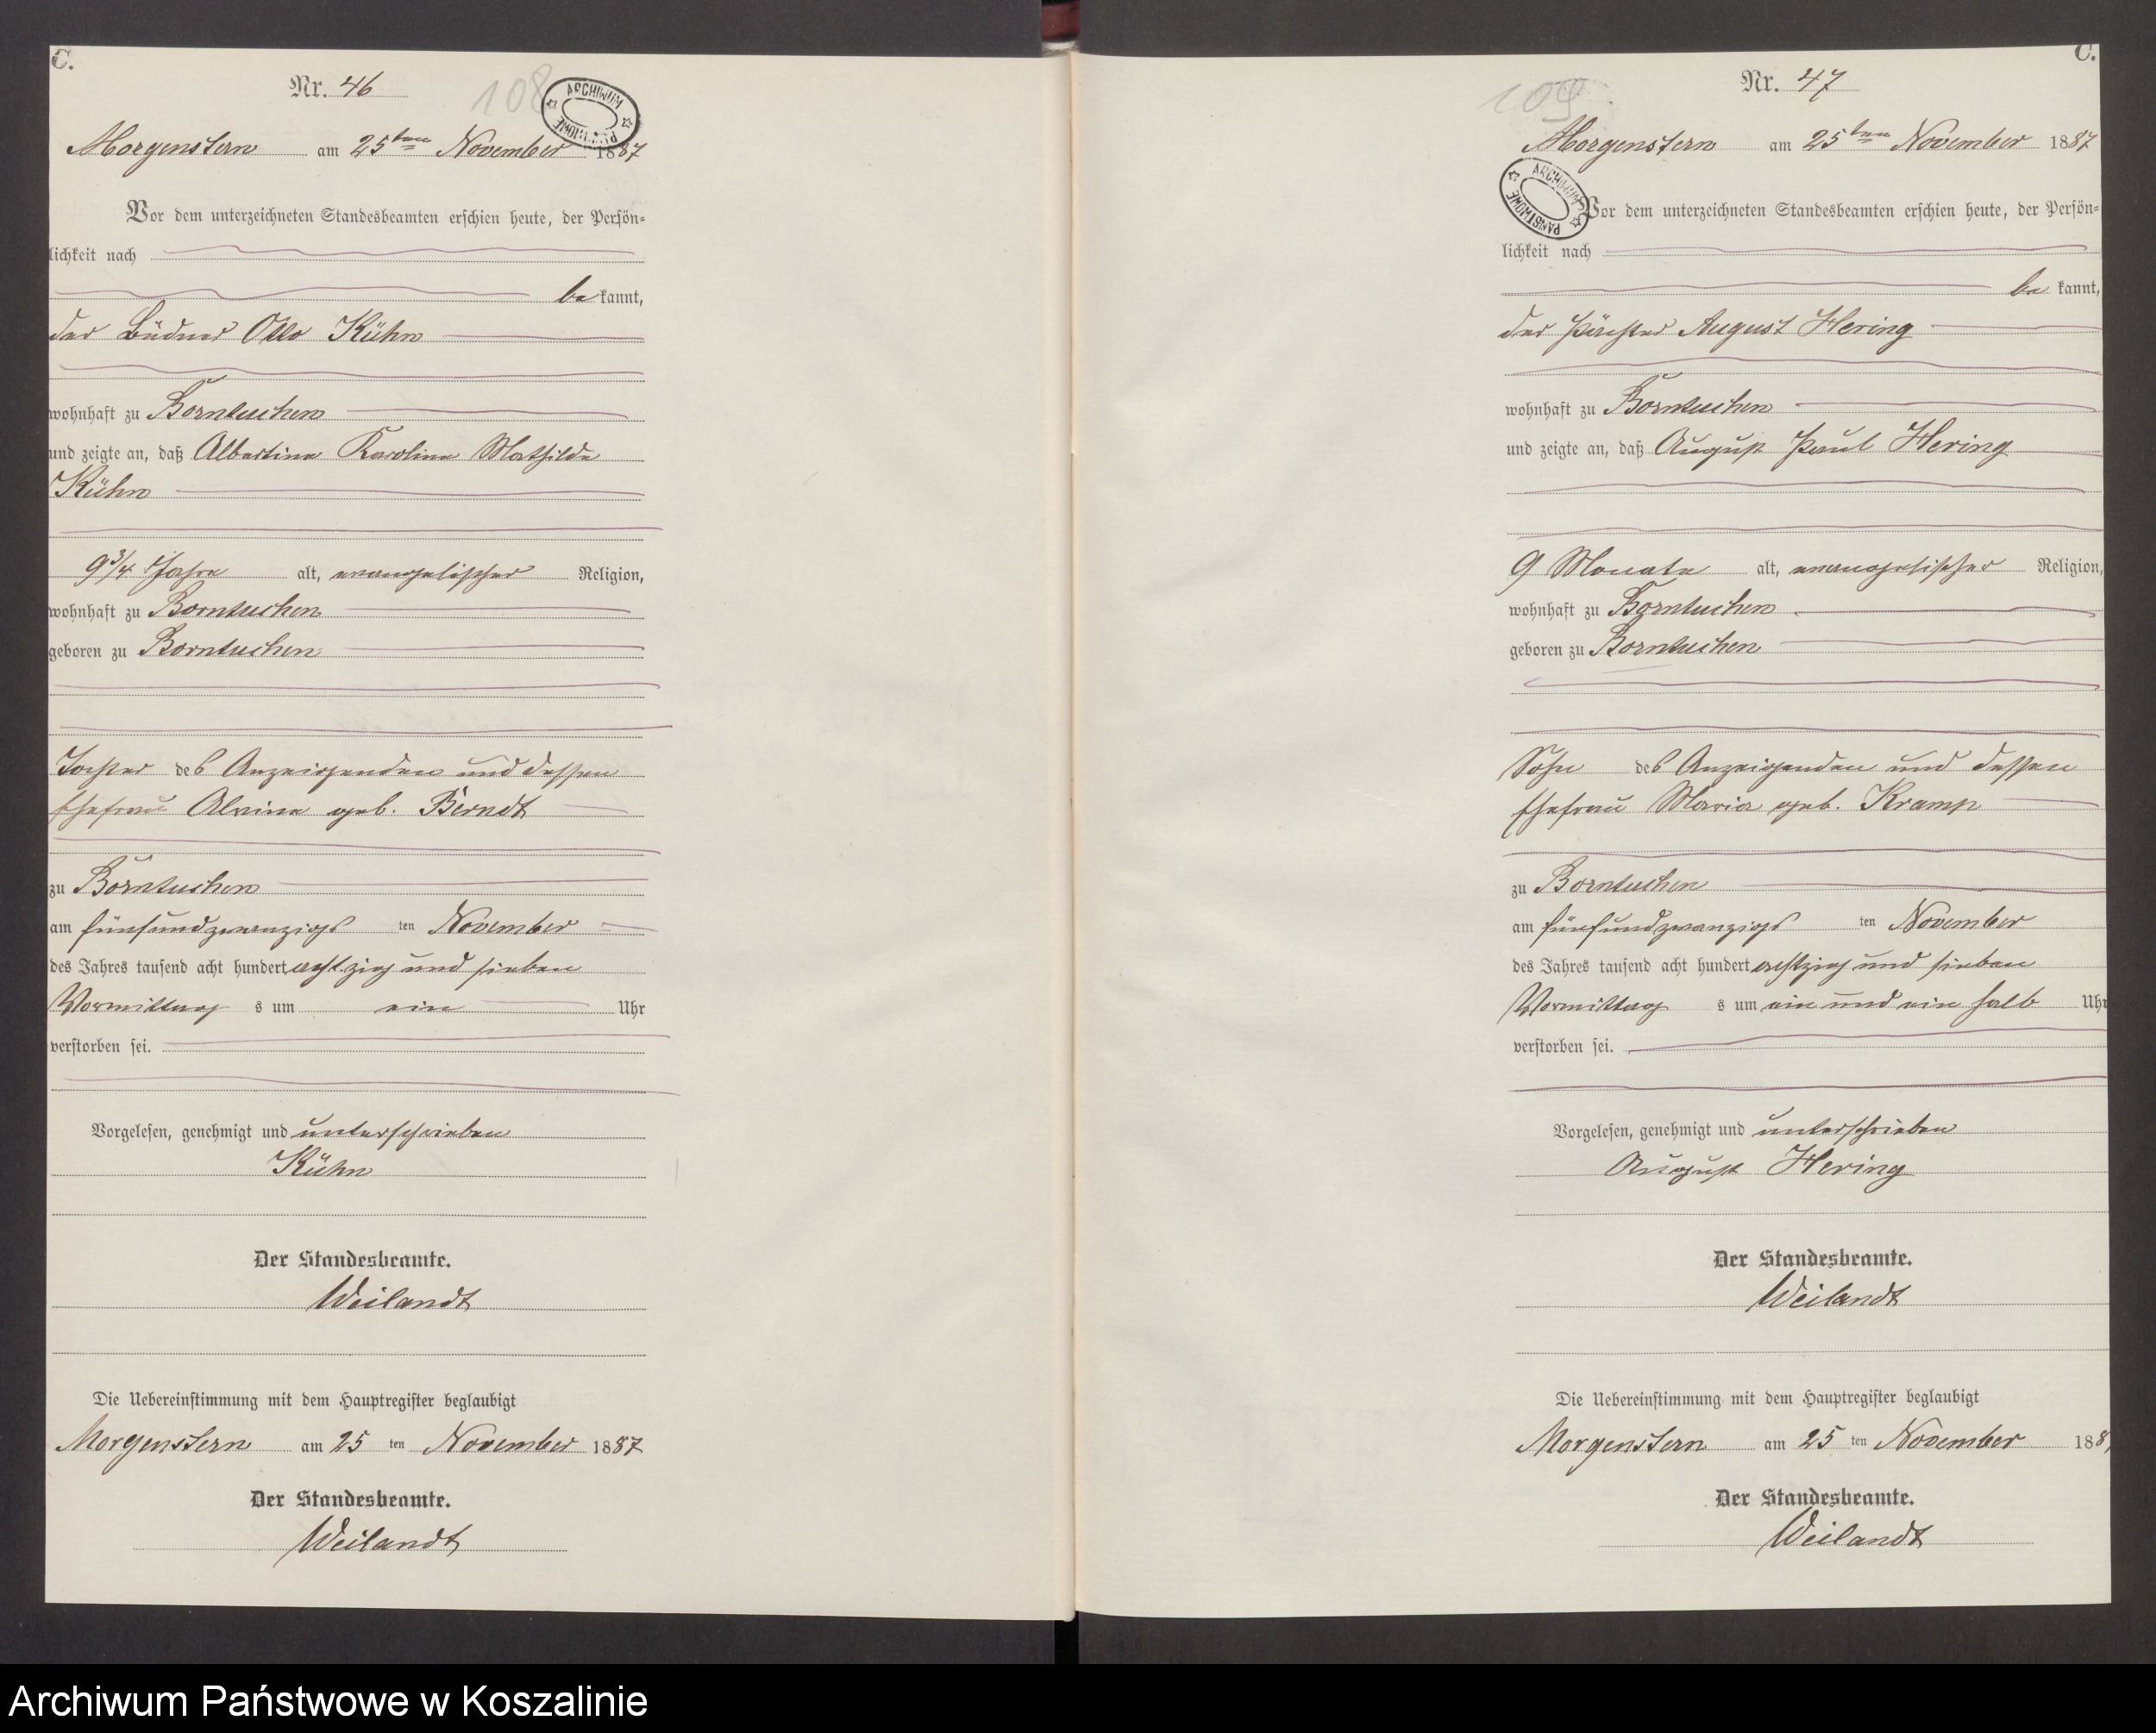 C.
Nr. 46
108
ARCHIWUM PAŃSTWOWE
Morgenstern am 25ten November 1887
Vor dem unterzeichneten Standesbeamten erschien heute, der Persön-
lichkeit nach
be kannt,
der Büdner Otto Kühn
wohnhaft zu Borntuchen
und zeigte an, daß Albertine Karoline Mathilde
Kühn
9 3/4 Jahre alt, evangelischer Religion,
wohnhaft zu Borntuchen
geboren zu Borntuchen
Tochter des Anzeigenden und dessen
Ehefrau Alvine geb. Berndt
zu Borntuchen
am fünfundzwanzigs ten November
des Jahres tausend acht hundert achtzig und sieben
Vormittag s um ein Uhr
verstorben sei.
Vorgelesen, genehmigt und unterschrieben
Kühn
Der Standesbeamte.
Weilandt
Die Uebereinstimmung mit dem Hauptregister beglaubigt
Morgenstern am 25 ten November 1887
Der Standesbeamte.
Weilandt
C.
Nr. 47
109
Morgenstern am 25ten November 1887
ARCHIWUM PAŃSTWOWE
Vor dem unterzeichneten Standesbeamten erschien heute, der Persön-
lichkeit nach
be kannt,
der Pächter August Hering
wohnhaft zu Borntuchen
und zeigte an, daß August Paul Hering
9 Monate alt, evangelischer Religion,
wohnhaft zu Borntuchen
geboren zu Borntuchen
Sohn des Anzeigenden und dessen
Ehefrau Maria geb. Kramp
zu Borntuchen
am fünfundzwanzigs ten November
des Jahres tausend acht hundert achtzig und sieben
Vormittag s um ein und ein halb Uhr
verstorben sei.
Vorgelesen, genehmigt und unterschrieben
August Hering
Der Standesbeamte.
Weilandt
Die Uebereinstimmung mit dem Hauptregister beglaubigt
Morgenstern am 25 ten November 188
Der Standesbeamte.
Weilandt
Archiwum Państwowe w Koszalinie